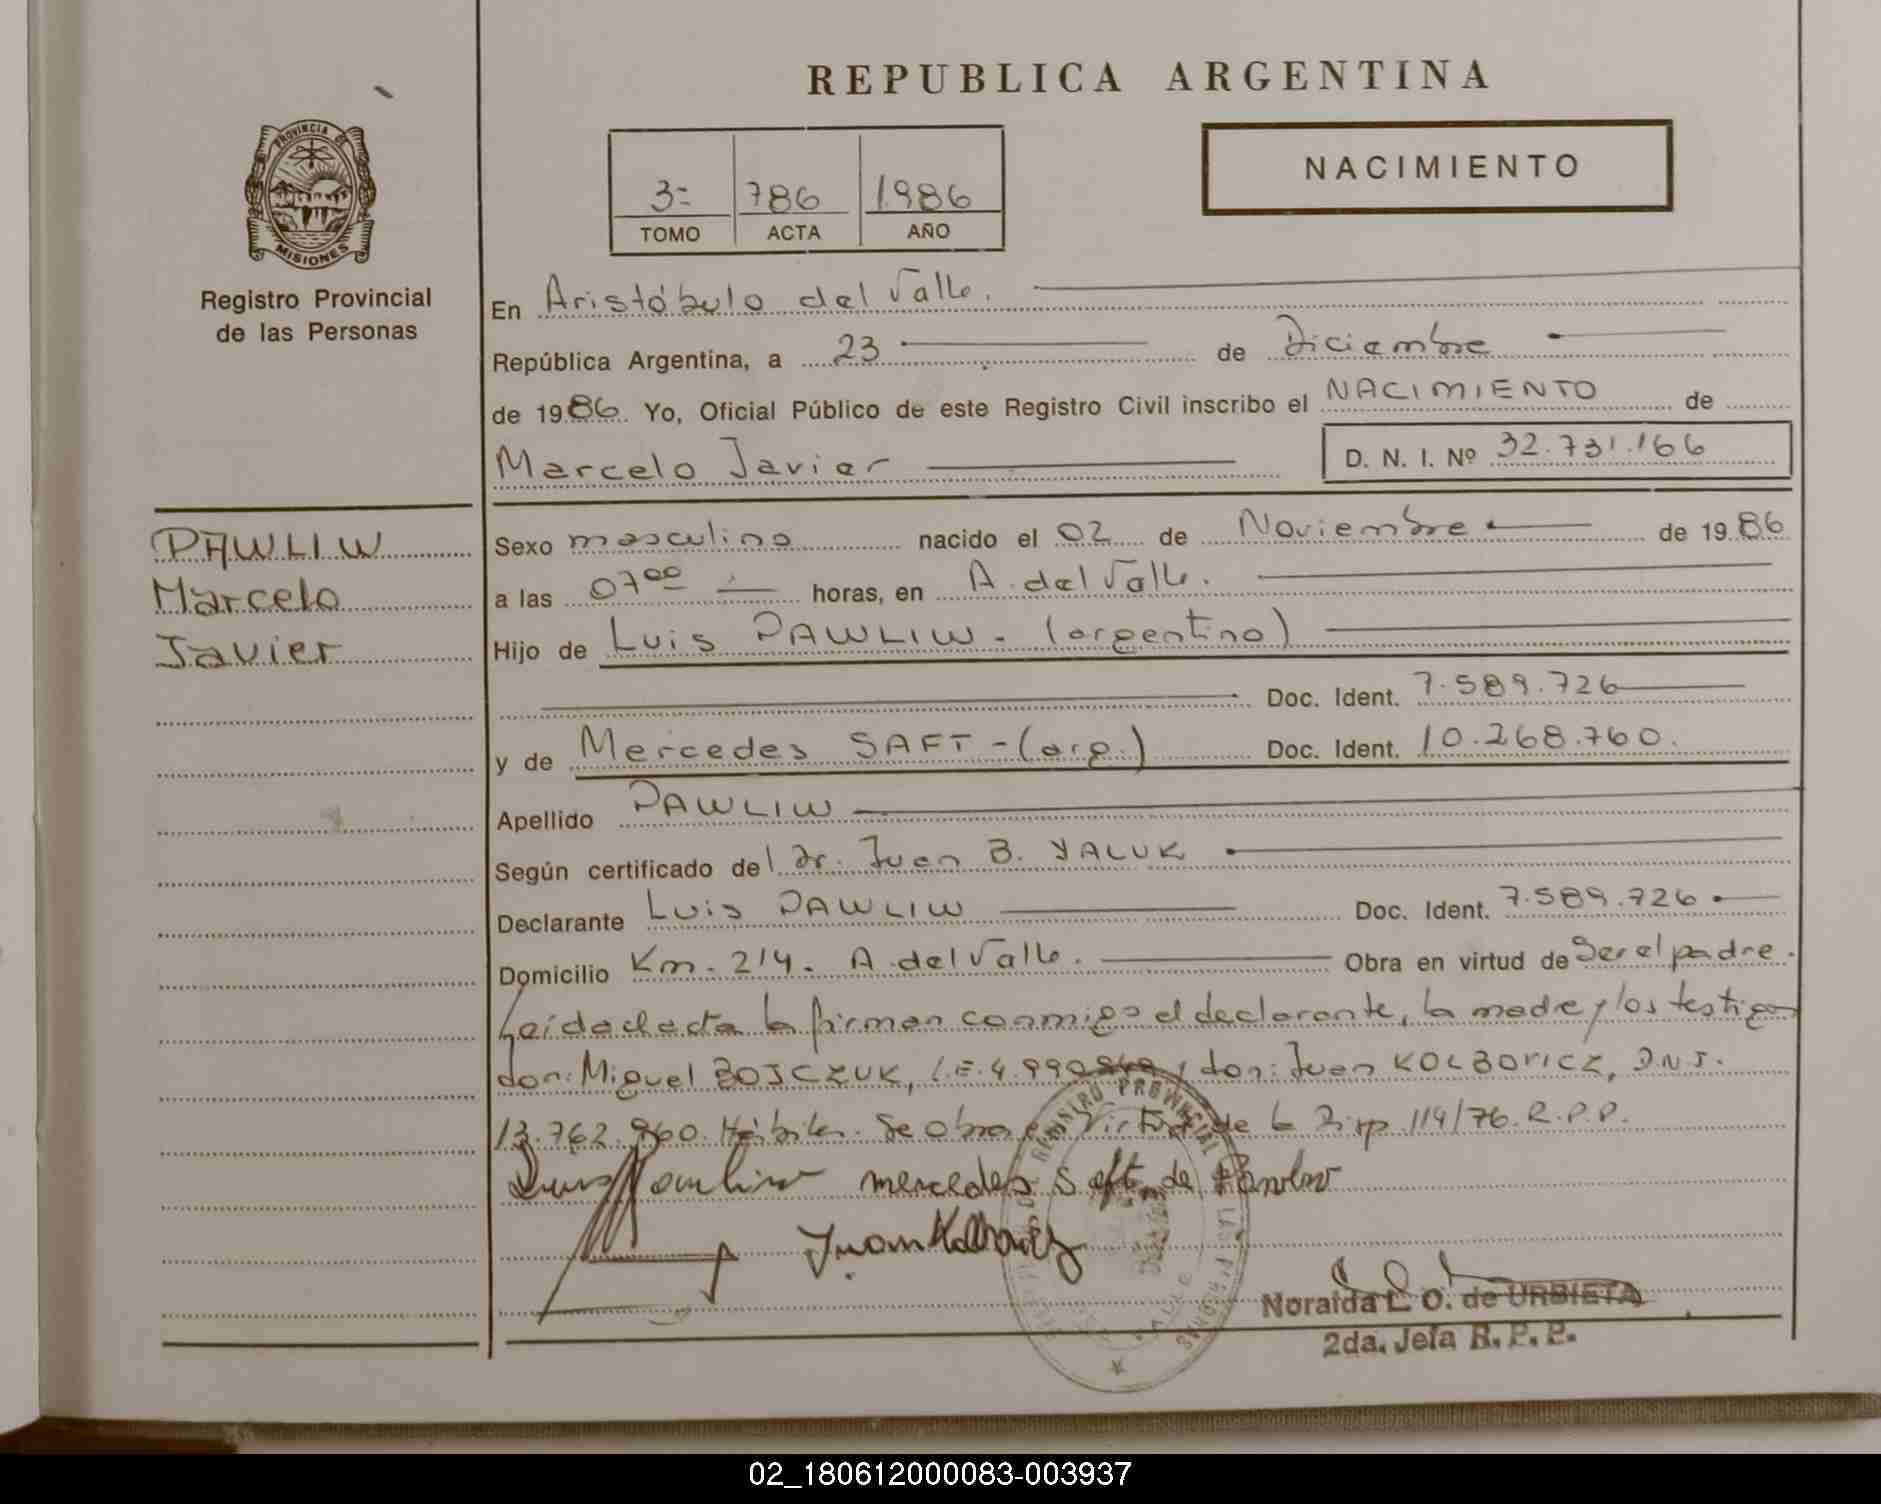 REPUBLICA ARGENTINA
PROVINCIA DE
MISIONES
Registro Provincial
de las Personas
3=
786
1.986
TOMO
ACTA
AÑO
NACIMIENTO
En Aristóbulo del Valle.
República Argentina, a 23 de Diciembre
de 1986. Yo, Oficial Público de este Registro Civil inscribo el NACIMIENTO de
Marcelo Javier
D. N. I. Nº 32.731.166
PAWLIW
Marcelo
Javier
Sexo masculino nacido el 02 de Noviembre de 1986
a las 0700 horas, en A. del Valle.
Hijo de Luis PAWLIW. (argentino)
Doc. Ident. 7.589.726
y de Mercedes SAFT - (arg.) Doc. Ident. 10.268.760.
Apellido PAWLIW
Según certificado del Dr. Juan B. YALUK
Declarante Luis PAWLIW Doc. Ident. 7.589.726
Domicilio Km. 214. A. del Valle. Obra en virtud de Ser el padre.
Leída el acta la firman conmigo el declarante, la madre y los testigos
don: Miguel BOJCZUK, L.E. 4.990 don: Juan KOLBOVICZ, D.N.I.
13.762.960. Hábiles. Se obra en Virtud de la Disp 114/76. R.P.P.
mercedes Saft de Pawliw
Juan
REGISTRO PROVINCIAL
Noraida L. O. de URBIETA
2da. Jefa R. P. P.
02_180612000083-003937